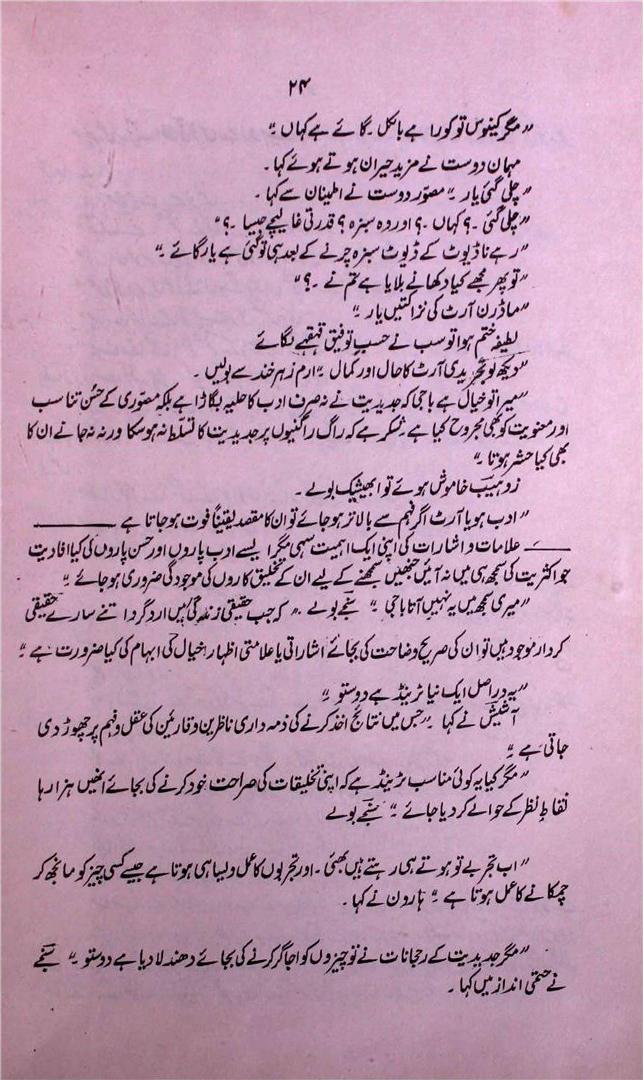 ۲۴
"مگر کینوس تو کورا ہے بالکل۔ گائے ہے کہاں۔"
مہمان دوست نے مزید حیران ہوتے ہوئے کہا۔
"چلی گئی یار۔" مصوّر دوست نے اطمینان سے کہا۔
"چلی گئی۔؟ کہاں۔؟ اور وہ سبزہ؟ قدرتی غالیچے جیسا۔؟"
"رہے نا ڈیوٹ کے ڈیوٹ سبزہ چرنے کے بعد ہی تو گئی ہے یار گائے۔"
"تو پھر مجھے کیا دکھانے بلایا ہے تم نے۔؟"
"ماڈرن آرٹ کی نزاکتیں یار۔"
لطیفہ ختم ہوا تو سب نے حسبِ توفیق قہقہے لگائے
"دیکھ لو تجریدی آرٹ کا حال اور کمال۔" ارم زہر خند سے بولیں۔
"میرا تو خیال ہے باجی کہ جدیدیت نے نہ صرف ادب کا حلیہ بگاڑا ہے بلکہ مصوّری کے حُسن تناسب
اور معنویت کو بھی مجروح کیا ہے۔ شکر ہے کہ راگ راگنیوں پر جدیدیت کا تسلّط نہ ہو سکا ورنہ نہ جانے ان کا
بھی کیا حشر ہوتا۔"
زوہیب خاموش ہوئے تو ابھیشیک بولے۔
"ادب ہو یا آرٹ اگر فہم سے بالاتر ہو جائے تو ان کا مقصد یقیناً فوت ہو جاتا ہے ــــــــ
ــــــ علامات و اشارات کی اپنی ایک اہمیت سہی مگر ایسے ادب پاروں اور حسن پاروں کی کیا افادیت
جو اکثریت کی سمجھ ہی میں نہ آئیں جنھیں سمجھنے کے لیے ان کے تخلیق کاروں کی موجودگی ضروری ہو جائے۔"
"میری سمجھ میں یہ نہیں آتا باجی۔" سنجے بولے۔ "کہ جب حقیقی زندگی میں ارد گرد اتنے سارے حقیقی
کردار موجود ہیں تو ان کی صریح وضاحت کی بجائے اشاراتی یا علامتی اظہارِ خیال کی ابہام کی کیا ضرورت ہے۔"
"یہ دراصل ایک نیا ٹرینڈ ہے دوستو۔"
آشیش نے کہا۔ "جس میں نتائج اخذ کرنے کی ذمہ داری ناظرین و قارئین کی عقل و فہم پر چھوڑ دی
جاتی ہے۔"
"مگر کیا یہ کوئی مناسب ٹرینڈ ہے کہ اپنی تخلیقات کی صراحت خود کرنے کی بجائے انھیں ہزارہا
نقاطِ نظر کے حوالے کر دیا جائے۔" سنجے بولے
"اب تجربے تو ہوتے ہی رہتے ہیں بھئی۔ اور تجربوں کا عمل ویسا ہی ہوتا ہے جیسے کسی چیز کو مانجھ کر
چمکانے کا عمل ہوتا ہے۔" ہارون نے کہا۔
"مگر جدیدیت کے رجحانات نے تو چیزوں کو اجاگر کرنے کی بجائے دھندلا دیا ہے دوستو۔" سنجے
نے حتمی انداز میں کہا۔